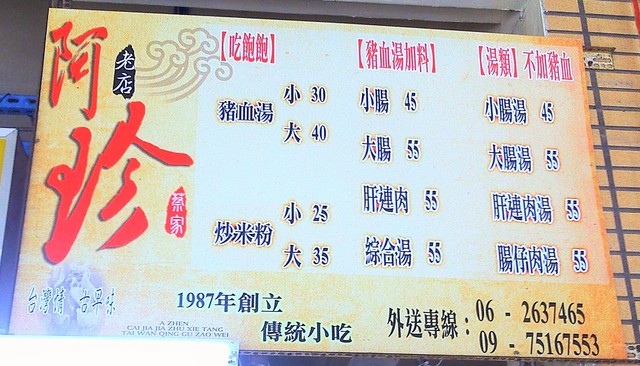 阿珍
老店
蔡家
台灣情 古早味
【吃飽飽】
豬血湯 小 30
大 40
炒米粉 小 25
大 35
【豬血湯加料】
小腸 45
大腸 55
肝連肉 55
綜合湯 55
【湯類】不加豬血
小腸湯 45
大腸湯 55
肝連肉湯 55
腸仔肉湯 55
1987年創立
傳統小吃
A ZHEN
CAI JIA JIA ZHU XIE TANG
TAI WAN QING GU ZAO WEI
外送專線：06 - 2637465
09 - 75167553